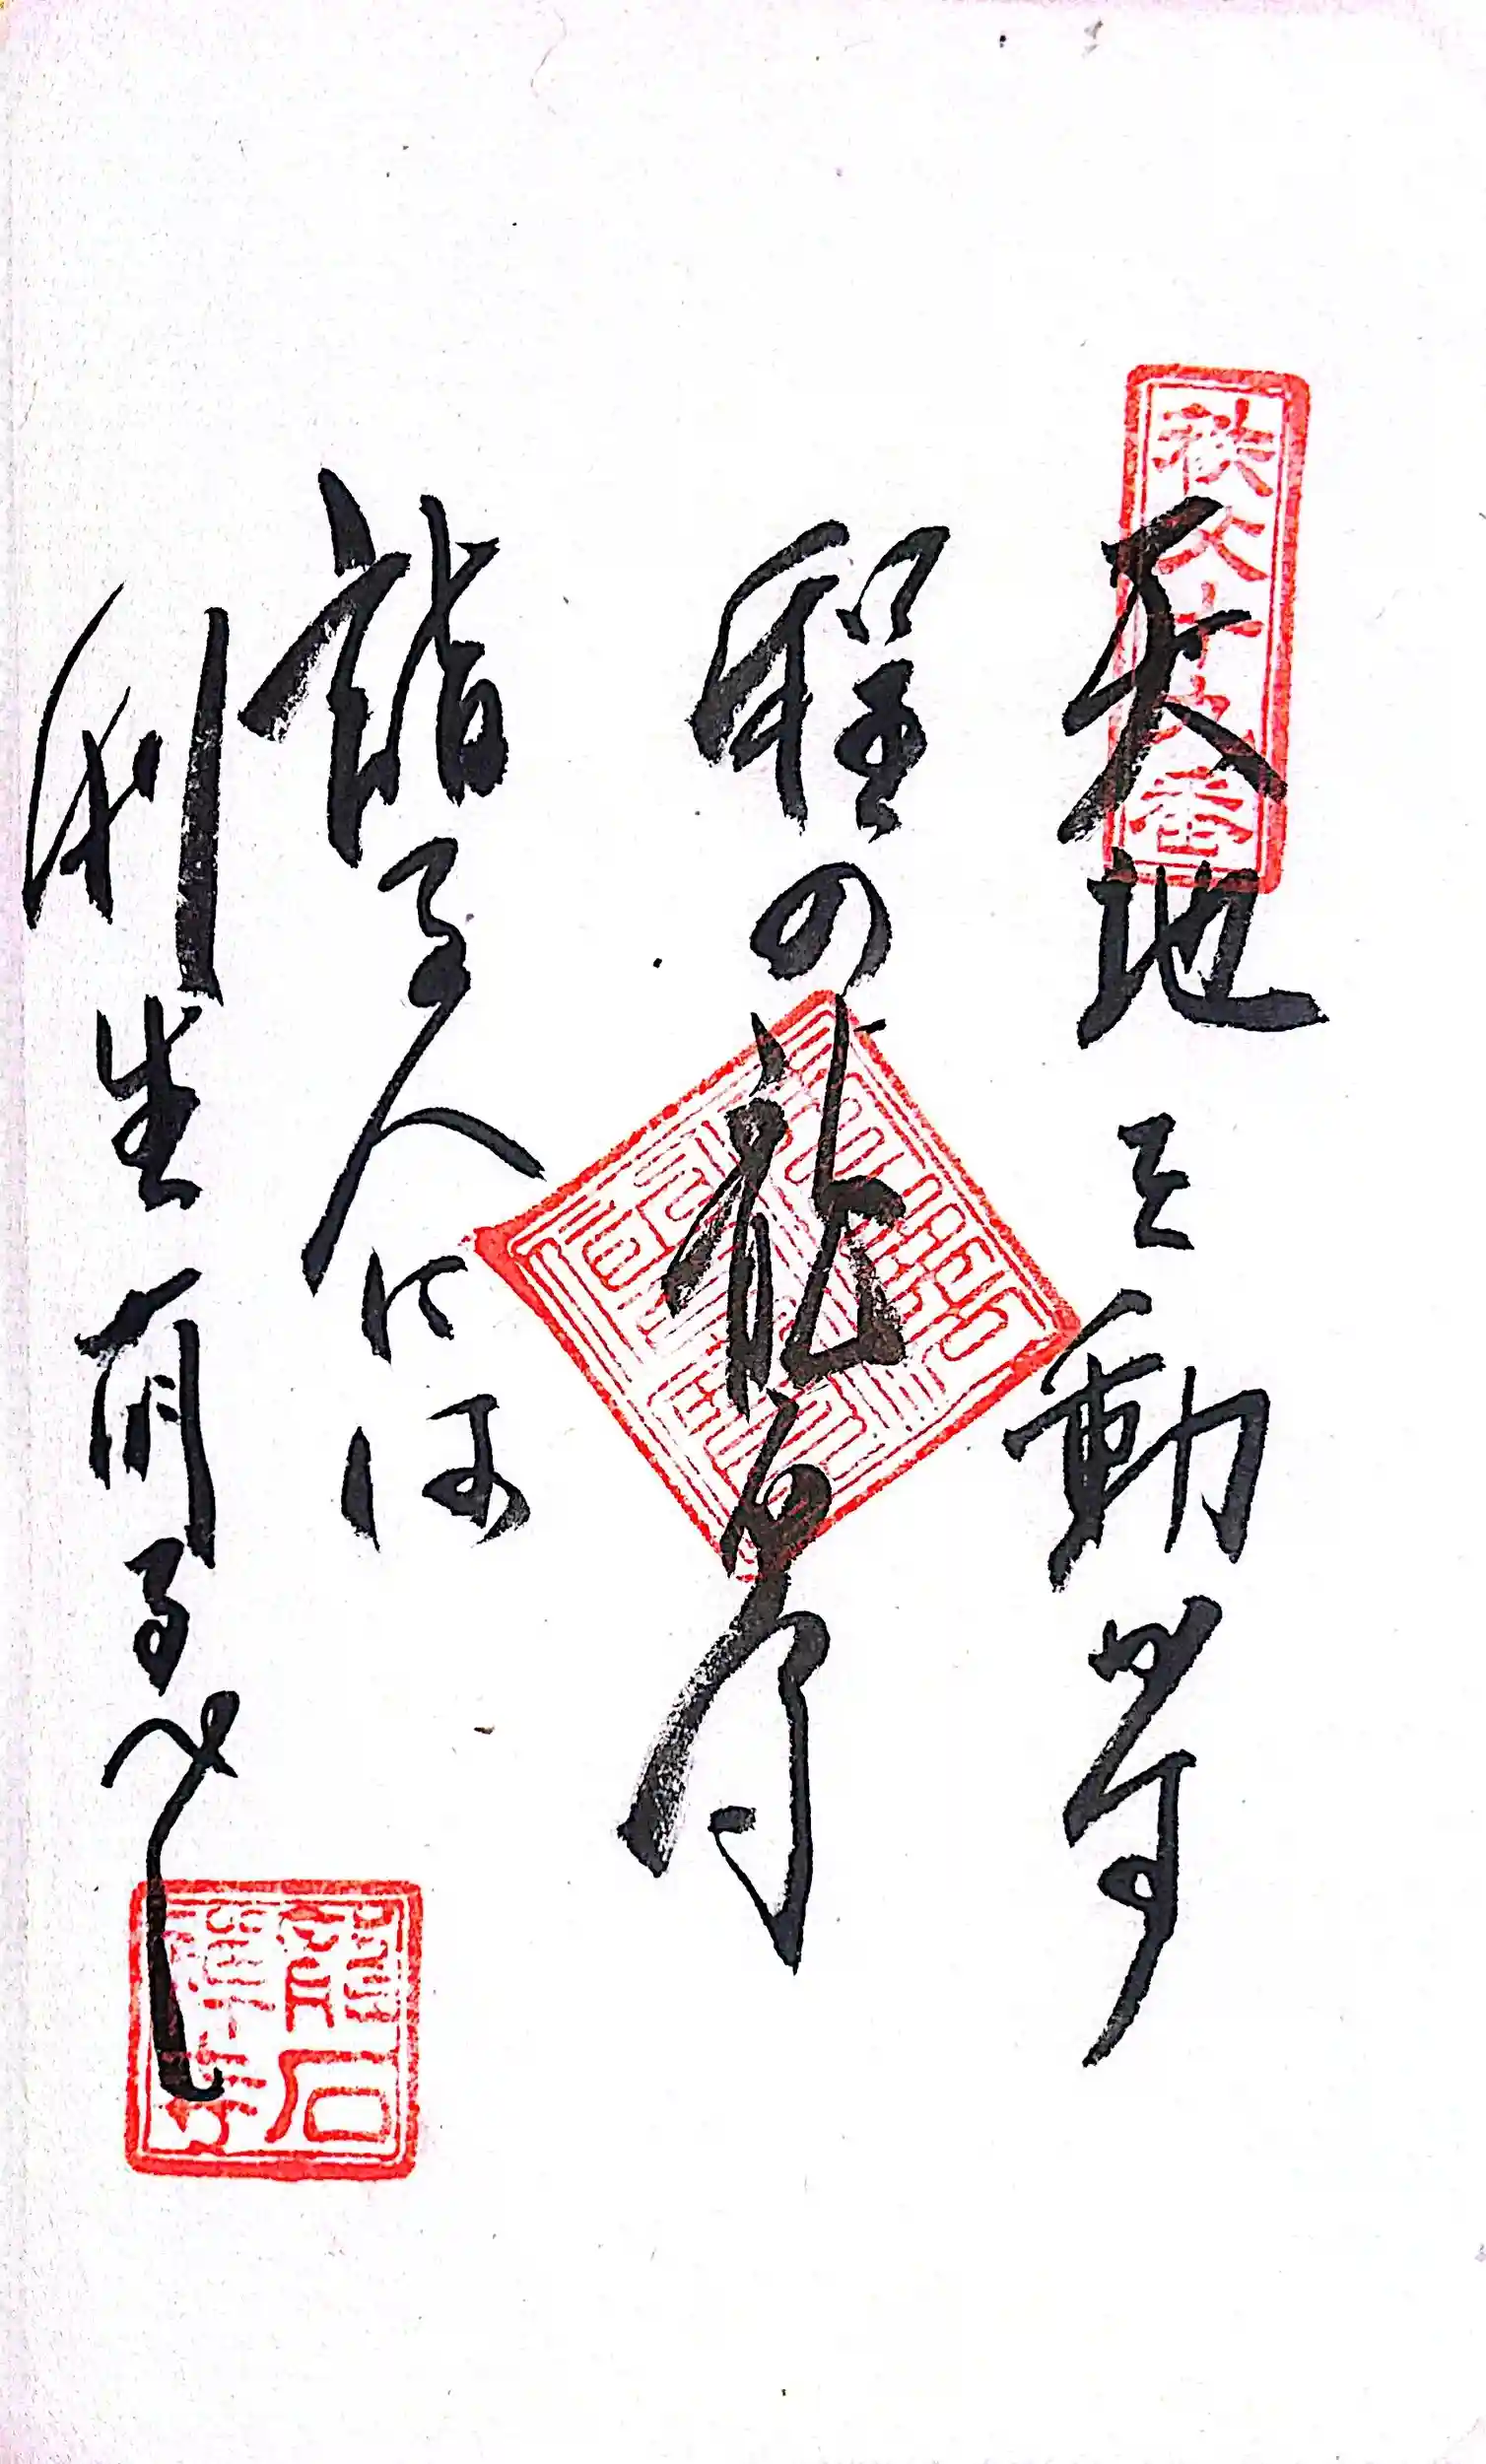 秩父十九番
天地を動かす
程の龍石寺
詣る人には
利生有るべし
龍石
禪寺